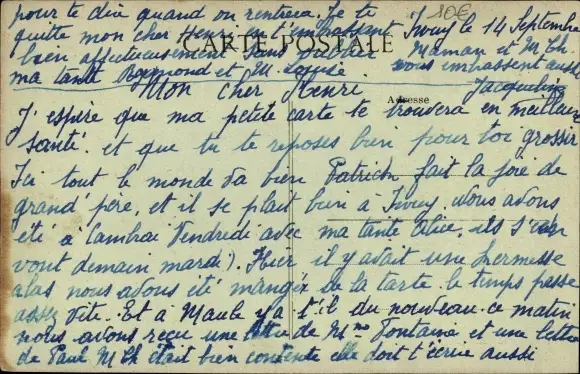 Ivuy le 14 Septembre
10€
CARTE POSTALE
Adresse
Mon cher Henri
J'espère que ma petite carte te trouvera en meilleure
santé. et que tu te reposes bien pour toi grossir
Ici tout le monde va bien Patrick fait la joie de
grand'père, et il se plait bien à Ivuy. Nous avons
été à Cambrai Vendredi avec ma tante Alice, ils s'en
vont demain mardi). Hier il y avait une Kermesse
alas nous avons été manger de la tarte. le temps passe
assez vite. Et à Maule y a t'il du nouveau. ce matin
nous avons reçu une lettre de Mme Fontaine et une lettre
de Paul M Th était bien contente elle doit t'écrire aussi
pour te dire quand on rentrera. Je te
quitte mon cher Henri en t'embrassant
bien affectueusement sans oublier
ma tante Raymond et M.
Maman et M. Th.
vous embrassent aussi
Jacqueline